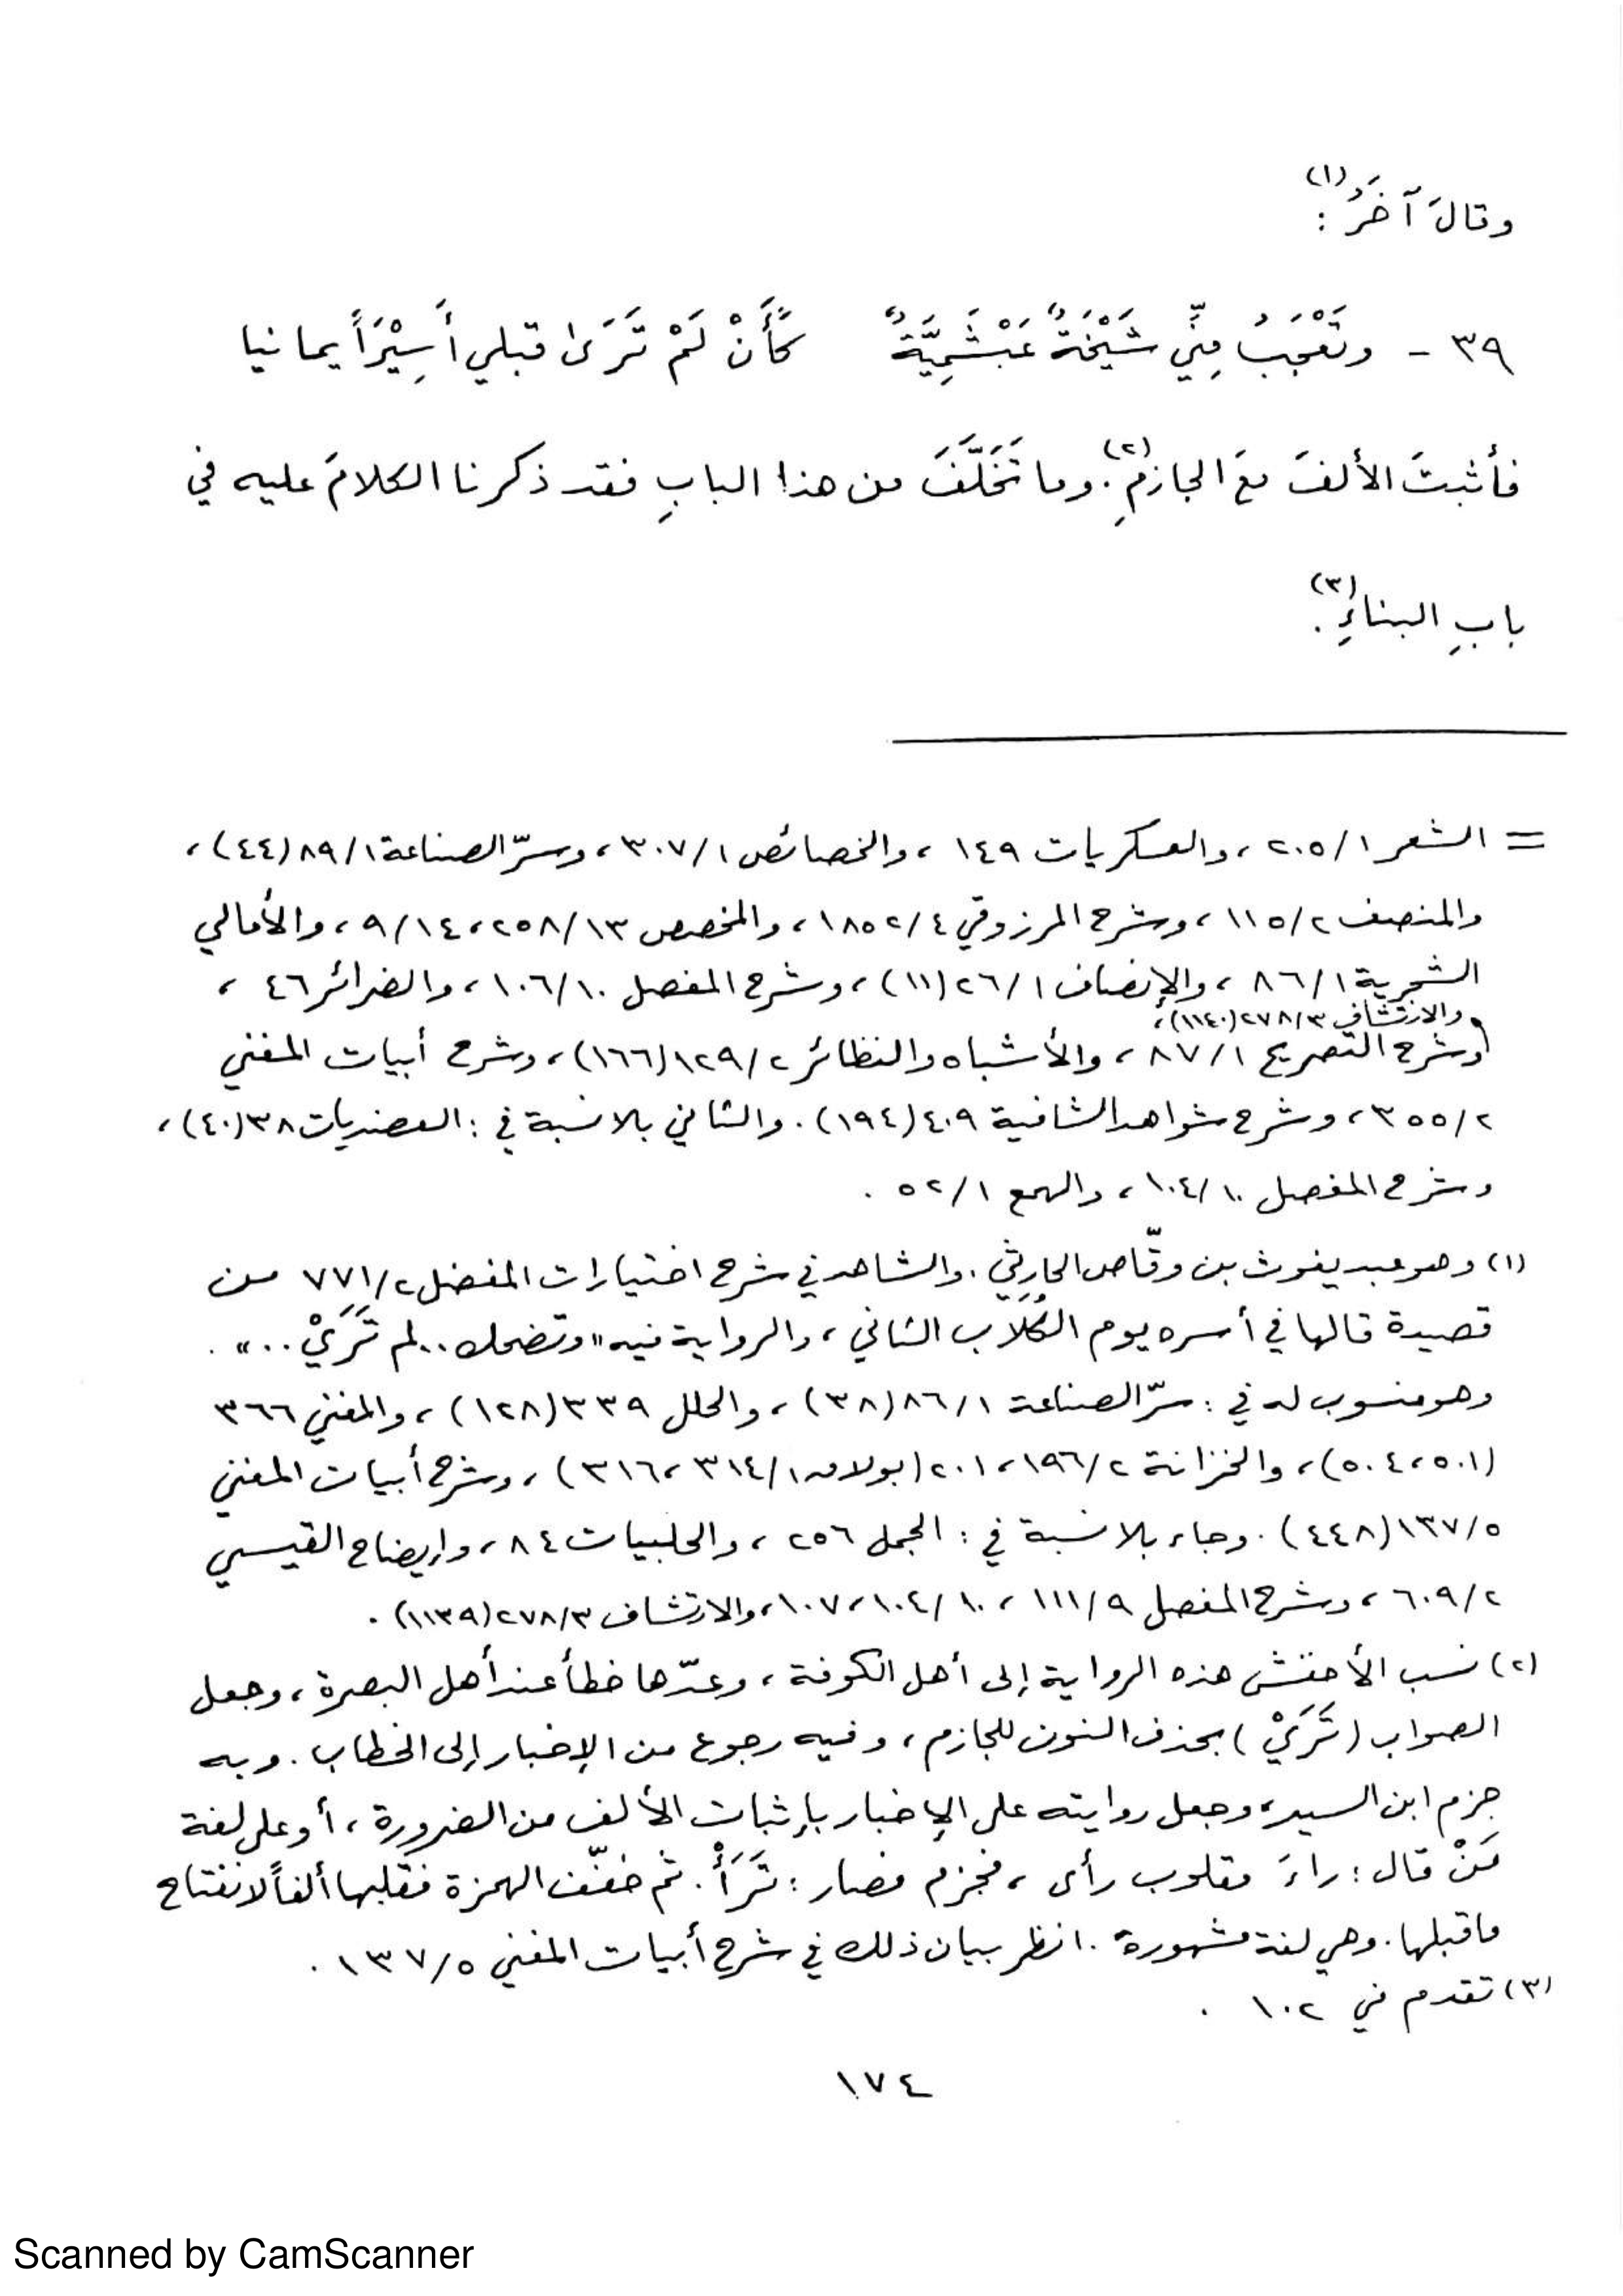 وقالَ آخَرُ(١) :
٣٩ - وتَعْجَبُ مِنِّي شَيْخَةٌ عَبْشَمِيَّةٌ كَأَنْ لَمْ تَرَىٰ قبلي أَسِيْرَاً يمانيا
فأثبتَ الألفَ معَ الجازمِ(٢). وما تَخَلَّفَ من هذا البابِ فقد ذكرنا الكلامَ عليه في
بابِ البناءِ(٣).
= الشعر ٢٠٥/١ ، والعسكريات ١٤٩ ، والخصائص ٣٠٧/١ ، وسرّ الصناعة ٨٩/١ (٤٤) ،
والمنصف ١١٥/٢ ، وشرح المرزوقي ١٨٥٢/٤ ، والمخصص ٢٥٨/١٣ ، ٩/١٤ ، والأمالي
الشجرية ٨٦/١ ، والإنصاف ٢٦/١ (١١) ، وشرح المفصل ١٠٦/١٠ ، والضرائر ٤٦ ،
والارتشاف ٢٧٨/٣ (١١٤٠) ،
وشرح التصريح ٨٧/١ ، والأشباه والنظائر ١٢٩/٢ (١٦٦) ، وشرح أبيات المغني
٣٥٥/٢ ، وشرح شواهد الشافية ٤٠٩ (١٩٤) . والثاني بلا نسبة في : العضديات ٣٨ (٤٠) ،
وشرح المفصل ١٠٤/١٠ ، والهمع ٥٢/١ .
(١) وهو عبد يغوث بن وقّاص الحارثي . والشاهد في شرح اختيارات المفضل ٧٧١/٢ من
قصيدة قالها في أسره يوم الكُلَاب الثاني ، والرواية فيه « وتضحك .. لم تَرَيْ .. » .
وهو منسوب له في : سرّ الصناعة ٨٦/١ (٣٨) ، والحلل ٣٣٩ (١٢٨) ، والمغني ٣٦٦
(٥٠١ ، ٥٠٤) ، والخزانة ١٩٦/٢ ، ٢٠١ (بولاق ٣١٤/١ ، ٣١٦) ، وشرح أبيات المغني
١٣٧/٥ (٤٤٨) . وجاء بلا نسبة في : الجمل ٢٥٦ ، والحلبيات ٨٤ ، وإيضاح القيسي
٦٠٩/٢ ، وشرح المفصل ١١١/٩ ، ١٠٤/١٠ ، ١٠٧ ، والارتشاف ٢٧٨/٣ (١١٣٩) .
(٢) نسب الأخفش هذه الرواية إلى أهل الكوفة ، وعدّها خطأ عند أهل البصرة ، وجعل
الصواب (تَرَيْ) بحذف النون للجازم ، وفيه رجوع من الإخبار إلى الخطاب . وبه
جزم ابن السيد ، وجعل روايته على الإخبار بإثبات الألف من الضرورة ، أو على لغة
مَنْ قال : راءَ مقلوب رأى ، فجزم فصار : تَرَأْ . ثم خفّف الهمزة فقلبها ألفاً لانفتاح
ماقبلها . وهي لغة مشهورة . انظر بيان ذلك في شرح أبيات المغني ١٣٧/٥ .
(٣) تقدم في ١٠٢ .
١٧٤
Scanned by CamScanner